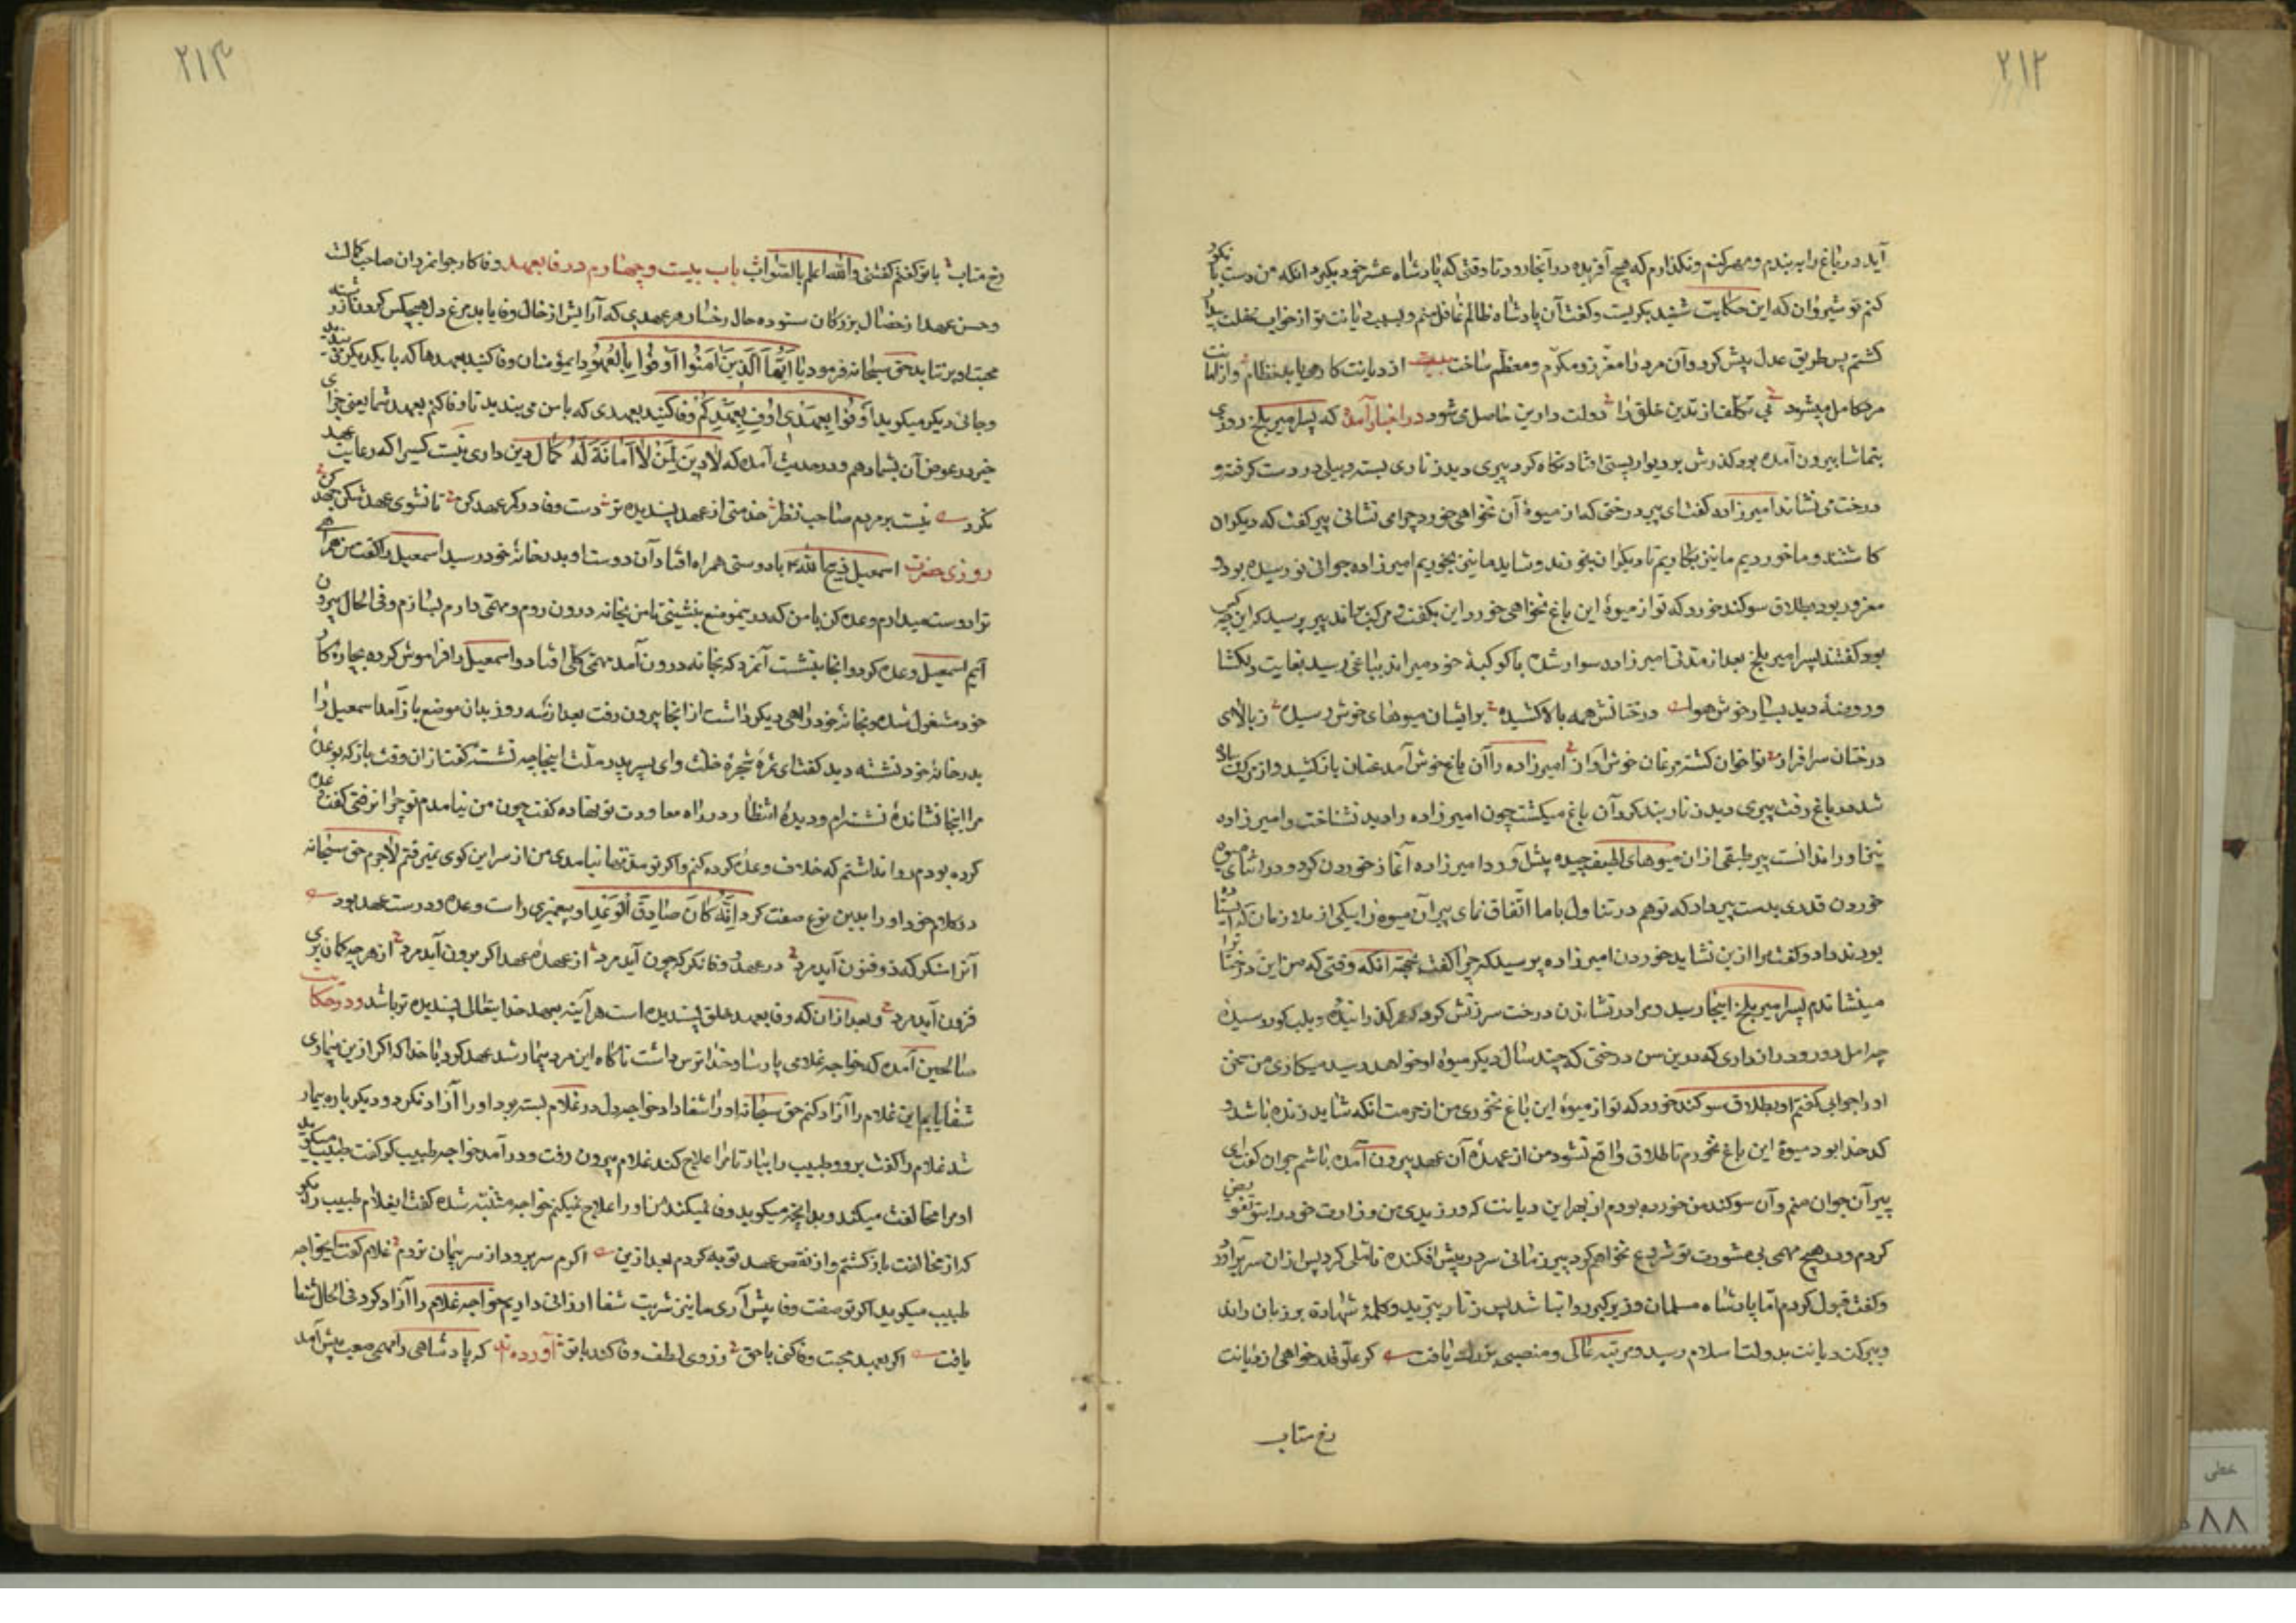 ۲۱۲
آید در باغ را به بندم و مهر کنم و نگذارم که هیچ آفریده در آنجا رود تا وقتی که پادشاه عشر خود بگیرد انکه من دست باز
کنم نوشیروان که این حکایت شنید بگریست و گفت آن پادشاه ظالم غافل منم و بسبب دیانت تو از خواب غفلت بیدار
گشتم پس طریق عدل پیش کرد و آن مرد را معزز و مکرم و معظم ساخت بیت از دیانت کار دین یابد نظام و از امانت
مرد کامل میشود بی تکلف از تدین خلق را دولت دارین حاصل می شود در اخبار آمده که پسر امیر بلخ روزی
بتماشا بیرون آمده بود گذرش بر دیوار بستی افتاد نگاه کرد پیری دید زناری بسته و بیلی در دست گرفته و
درخت می نشاند امیرزاده گفت ای پیر درختی که از میوهٔ آن نخواهی خورد چرا می نشانی پیر گفت که دیگران
کاشتند و ما خوردیم ما نیز بکاریم تا دیگران بخورند و شاید ما نیز بخوریم امیرزاده جوانی نورسیده بود و
مغرور بود بطلاق سوگند خورد که تو از میوهٔ این باغ نخواهی خورد این بگفت و مرکب براند پیر پرسید که این چه کس
بود گفتند پسر امیر بلخ بعد از مدتی امیرزاده سوار شده با کوکبهٔ خود میراند بباغی رسید بغایت دلگشا
و روضهٔ دید بسیار خوش هوا درختانش همه بالا کشیده بر ایشان میوهای خوش رسیده ز بالای
درختان سرافراز نواخوان گشته مرغان خوش آواز امیرزاده را آن باغ خوش آمد عنان باز کشید و از مرکب پیاده
شد در باغ رفت پیری دید زنار بند گرد آن باغ میگشت چون امیرزاده را دید نشناخت و امیرزاده
نیز او را ندانست پیر طبقی از ان میوهای لطیف چیده پیش آورد امیرزاده آغاز خوردن کرد و در اثنای میوه
خوردن قدری بدست پیر داد که تو هم در تناول با ما اتفاق نمای پیر آن میوه را بیکی از ملازمان که ایستاده
بودند داد و گفت مرا ازین نشاید خوردن امیرزاده پرسید که چرا گفت بجهت انکه وقتی که من این درختانرا
مینشاندم پسر امیر بلخ اینجا رسید و مرا در نشاندن درخت سرزنش کرد که عمر گذرانیده و بلب گور رسیده
چرا امل دور و دراز داری که درین سن درختی که چند سال دیگر میوه او خواهد رسید میکاری من سخن
او را جوابی گفتم او بطلاق سوگند خورد که تو از میوهٔ این باغ نخوری من از حرمت انکه شاید زنده باشد و
کدخدا بود میوهٔ این باغ نخوردم تا طلاق واقع نشود من از عهدهٔ آن عهد بیرون آمده باشم جوان گفت ای
پیر آن جوان منم و آن سوگند من خورده بودم از بهر این دیانت که ورزیدی من وزارت خود را بتو تفویض
کردم و در هیچ مهمی بی مشورت تو شروع نخواهم کرد پیر زمانی سر در پیش افکنده تأملی کرد پس از ان سر برآورد
و گفت قبول کردم اما پادشاه مسلمان وزیر گبر روا نباشد پس زنار ببرید و کلمهٔ شهادة بر زبان راند
و ببرکت دیانت بدولت اسلام رسید و مرتبه عالی و منصبی بزرگ یافت گر علو قدر خواهی از دیانت
رخ متاب
۲۱۳
رخ متاب با تو گفتم گفتنی والله اعلم بالصواب باب بیست و چهارم در وفا بعهد وفا کار جوانمردان صاحب کمالست
و حسن عهد از خصال بزرگان ستوده حال رخسار هر عهدی که آرایش از خال وفا یابد مرغ دل هیچکس گرد نازرشته
محبت او برنتابد حق سبحانه فرمود یا ایها الذین آمنوا اوفوا بالعقود ای مؤمنان وفا کنید بعهدها که با یکدیگر می بندید
و جائی دیگر میگوید اوفوا بعهدی اوف بعهدکم وفا کنید بعهدی که با من می بندید تا وفا کنم بعهد شما یعنی جزای
خیر در عوض آن بشما دهم و در حدیث آمده که لا دین لمن لا امانة له کمال دین داری نیست کسیرا که رعایت عهد
نکرد نیست بر مردم صاحب نظر خدمتی از عهد پسندیده تر دست وفا در کمر عهد کن تا نشوی عهد شکن جهد کن
روزی حضرت اسمعیل ذبیح الله ع با دوستی همراه افتاد آن دوست او بدر خانهٔ خود رسید اسمعیل را گفت من همراهی
ترا دوست میدارم وعده کن با من که درین موضع بنشینی تا من بخانه درون روم و مهمی دارم بسازم و فی الحال بیرون
آیم اسمعیل وعده کرد و انجا بنشست آنمرد که بخانه درون آمد مهمی کلی افتاد و اسمعیل را فراموش کرده بچاره کار
خود مشغول شده و بخانهٔ خود راهی دیگر داشت از انجا بیرون رفت بعد از سه روز بدان موضع باز آمد اسمعیل را
بدر خانهٔ خود نشسته دید گفت ای ثمرهٔ شجرهٔ خلت و ای پسر پدر ملت اینجا چه نشستهٔ گفت از ان وقت باز که بوعده
مرا اینجا نشاندهٔ نشسته ام و دیدهٔ انتظار در راه معاودت تو نهاده گفت چون من نیامدم تو چرا نرفتی گفت وعده
کرده بودم روا نداشتم که خلاف وعده کرده کنم و اگر تو مدتها نیامدی من از سر این کوی نمیرفتم لاجرم حق سبحانه
در کلام خود او را بدین نوع صفت کرد انه کان صادق الوعد او پیغمبری راست وعده و درست عهد بود
آنرا منگر که ذو فنون آید مرد در عهد و وفا نگر که چون آید مرد از عهدهٔ عهد اگر برون آید مرد از هر چه گمان بری
فزون آید مرد و بعد از ان که وفا بعهد خلق پسندیده است هر آینه بعهد خدایتعالی پسندیده تر باشد و در حکایات
صالحین آمده که خواجه غلامی پارسا و خداترس داشت ناگاه این مرد بیمار شد عهد کرد با خدا که اگر ازین بیماری
شفا یابم این غلام را آزاد کنم حق سبحانه او را شفا داد خواجه دل در غلام بسته بود او را آزاد نکرد و دیگر باره بیمار
شد غلام را گفت برو و طبیب را بیار تا مرا علاج کند غلام بیرون رفت و درآمد خواجه طبیب کو گفت طبیب میگوید
او مرا مخالفت میکند و بدانچه میگوید وفا نمیکند من او را علاج نمیکنم خواجه متنبه شده گفت ای غلام طبیب را بگو
که از مخالفت باز گشتم و از نقض عهد توبه کردم بعد ازین اگرم سر برود از سر پیمان نروم غلام گفت ای خواجه
طبیب میگوید اگر تو صفت وفا پیش آری ما نیز شربت شفا ارزانی داریم خواجه غلام را آزاد کرد فی الحال شفا
یافت اگر بعهد محبت وفا کنی با حق ز روی لطف وفا کند با تو آورده اند که پادشاهی را مهمی صعب پیش آمد
خطی